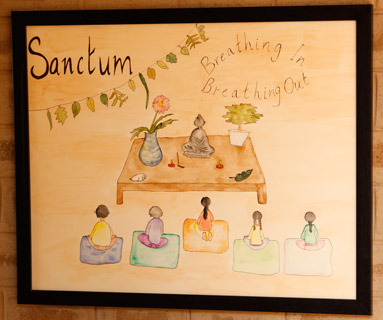 Sanctum
Breathing In
Breathing Out